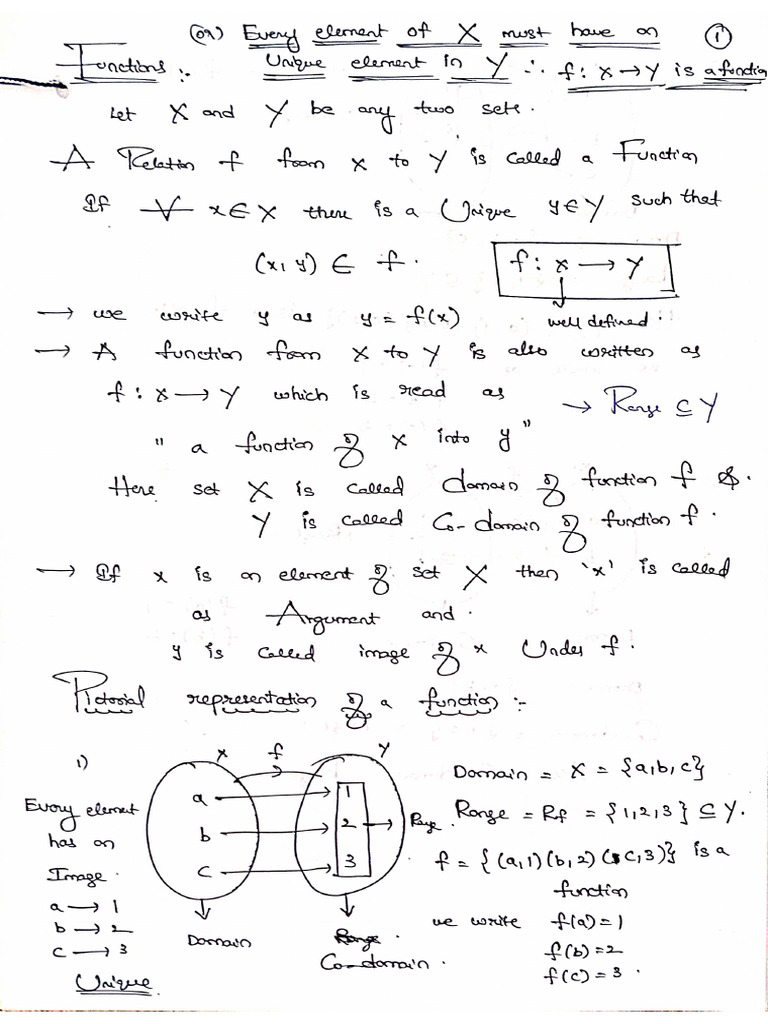 (or) Every element of X must have an ①
Functions :- Unique element in Y ∴ f: X → Y is a function
Let X and Y be any two sets.
A Relation f from X to Y is called a Function
If ∀ x ∈ X there is a Unique y ∈ Y such that
(x, y) ∈ f.
f : X → Y
well defined.
→ we write y as y = f(x)
→ A function from X to Y is also written as
f : X → Y which is read as
→ Range ⊆ Y
" a function of X into y "
Here set X is called domain of function f &.
Y is called Co-domain of function f.
→ If x is an element of set X then 'x' is called
as Argument and.
y is called image of x Under f.
Pictorial representation of a function :-
1)
X f Y
Every element
has an
Image.
a → 1
b → 2
c → 3
Unique
a 1
b 2 → Range.
c 3
Domain
Range.
Co-domain.
Domain = X = {a, b, c}
Range = Rf = {1, 2, 3} ⊆ Y.
f = { (a, 1) (b, 2) (c, 3)} is a
function
we write f(a) = 1
f(b) = 2
f(c) = 3.